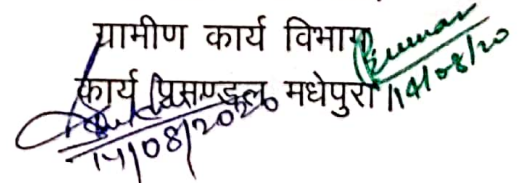 ग्रामीण कार्य विभाग
कार्य प्रमण्डल मधेपुरा
14/08/20
14/08/2020